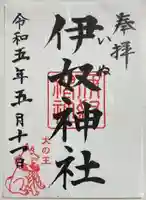 奉拝
伊奴神社
いぬ
犬の王
令和五年五月十一日